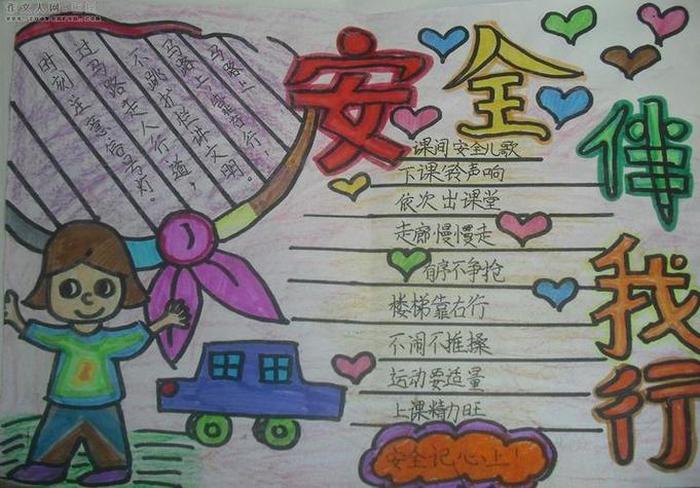 安全伴我行
马路上，
马路上，靠右行，
不跳扩栏讲文明。
过马路走人行道；
时刻注意信号灯。
课间安全儿歌
下课铃声响
依次出课堂
走廊慢慢走
有序不争抢
楼梯靠右行
不闹不推搡
运动要适量
上课精力旺
安全记心上！